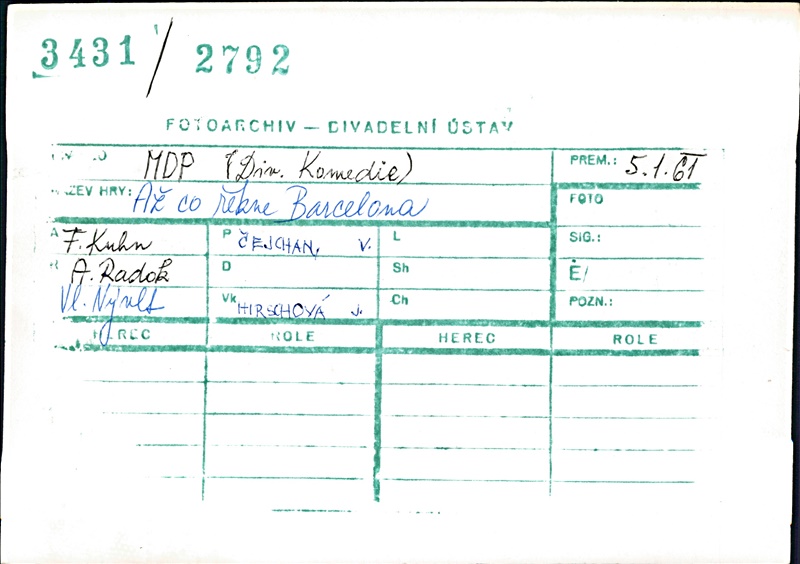 3431 / 2792
FOTOARCHIV — DIVADELNÍ ÚSTAV
MDP (Div. Komedie) PREM.: 5.1.61
ZEV HRY: Až co řekne Barcelona FOTO
A F. Kuhn P ČEJCHAN, V. L SIG.:
R A. Radok D Sh Ě/
Vl. Nývlt Vk HIRSCHOVÁ J. Ch POZN.:
HEREC ROLE HEREC ROLE